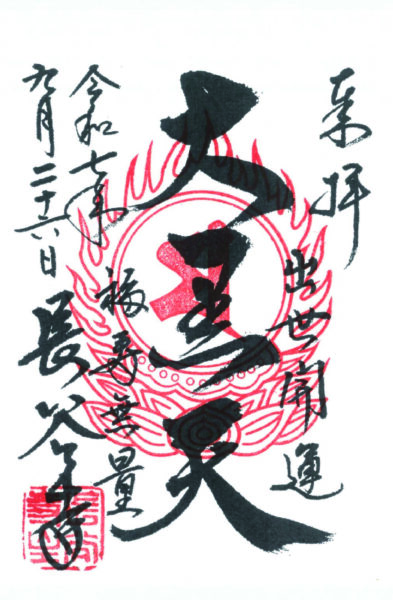 来拝
出世開運
大黒天
福寿無量
令和七年
九月二十六日
長谷寺